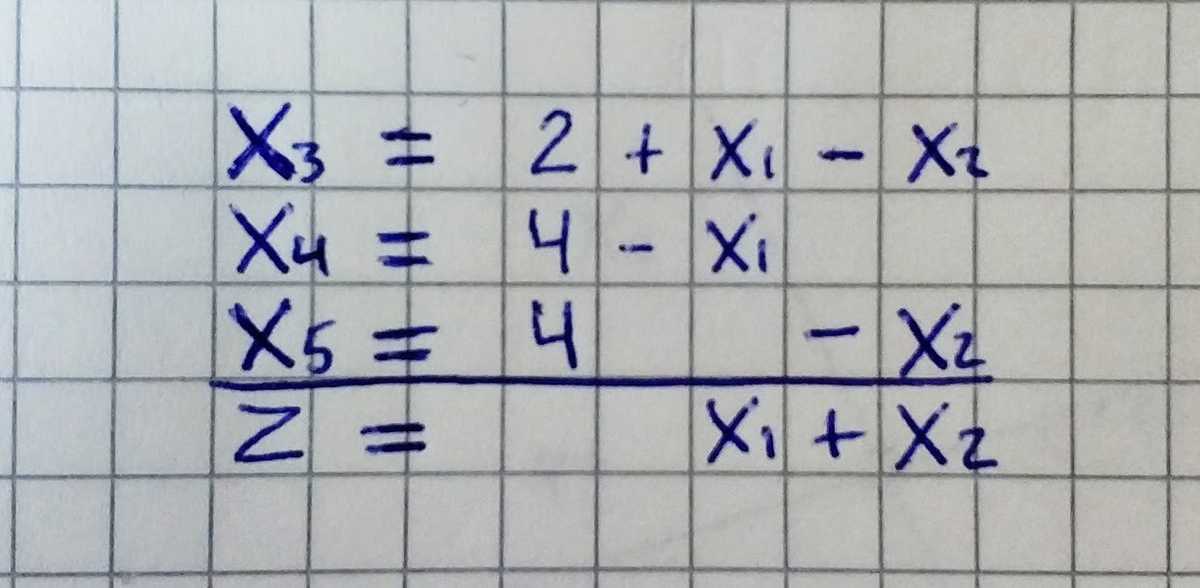 X₃ = 2 + X₁ - X₂
X₄ = 4 - X₁
X₅ = 4 - X₂
Z = X₁ + X₂